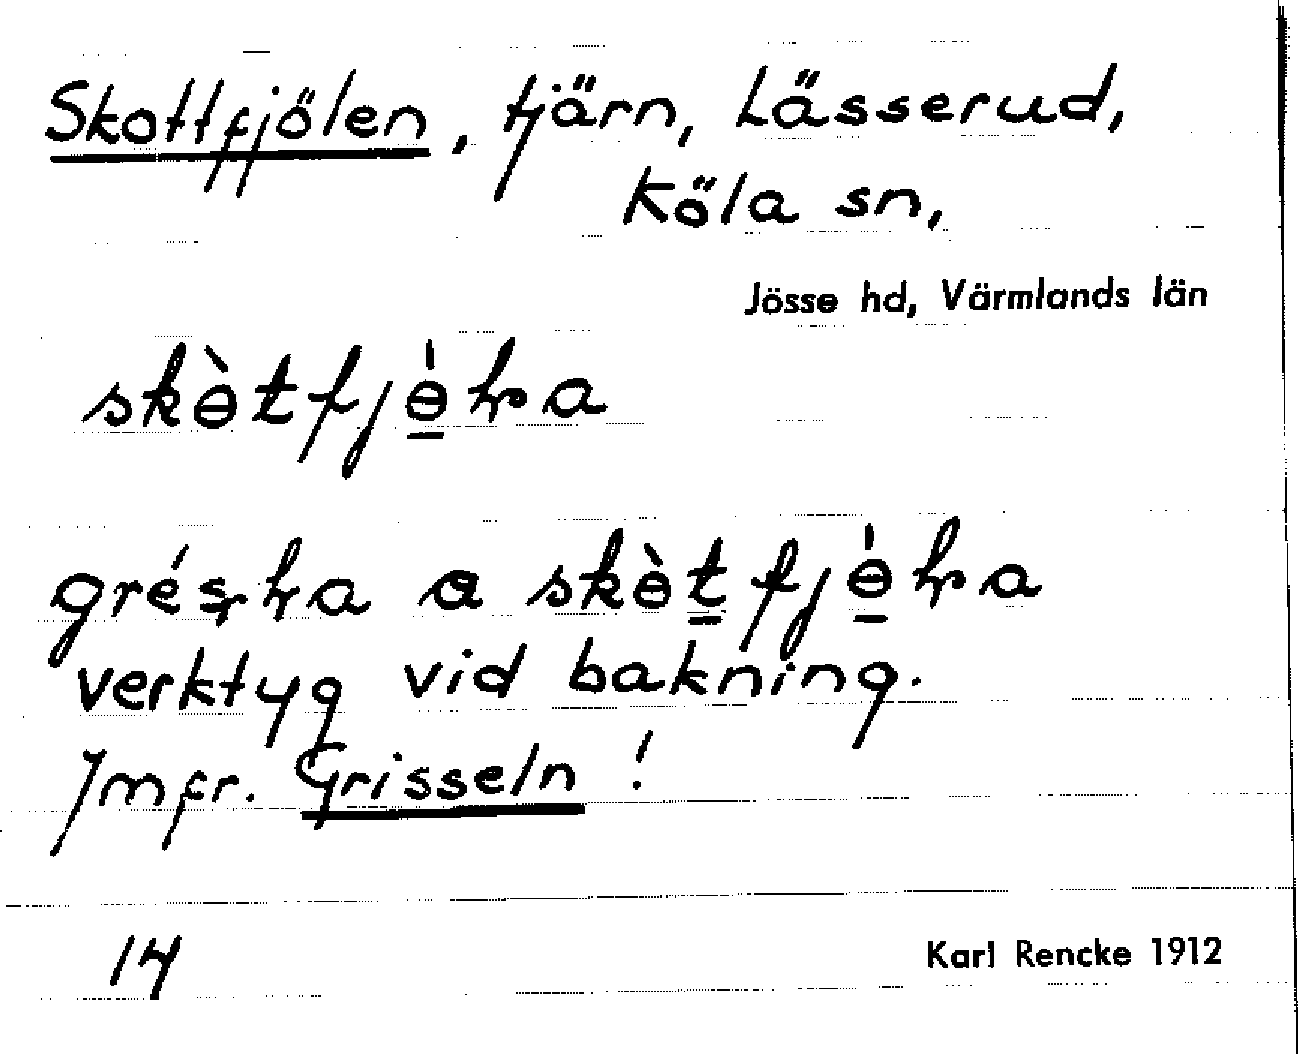 Skottfjölen, tjärn, Lässerud,
Köla sn,
Jösse hd, Värmlands län
skɵ̀tfjɵ̠́ɽa
grésɽa a skɵ̀t̠fjɵ̠́ɽa
verktyg vid bakning.
Jmfr. Grisseln !
14
Karl Rencke 1912